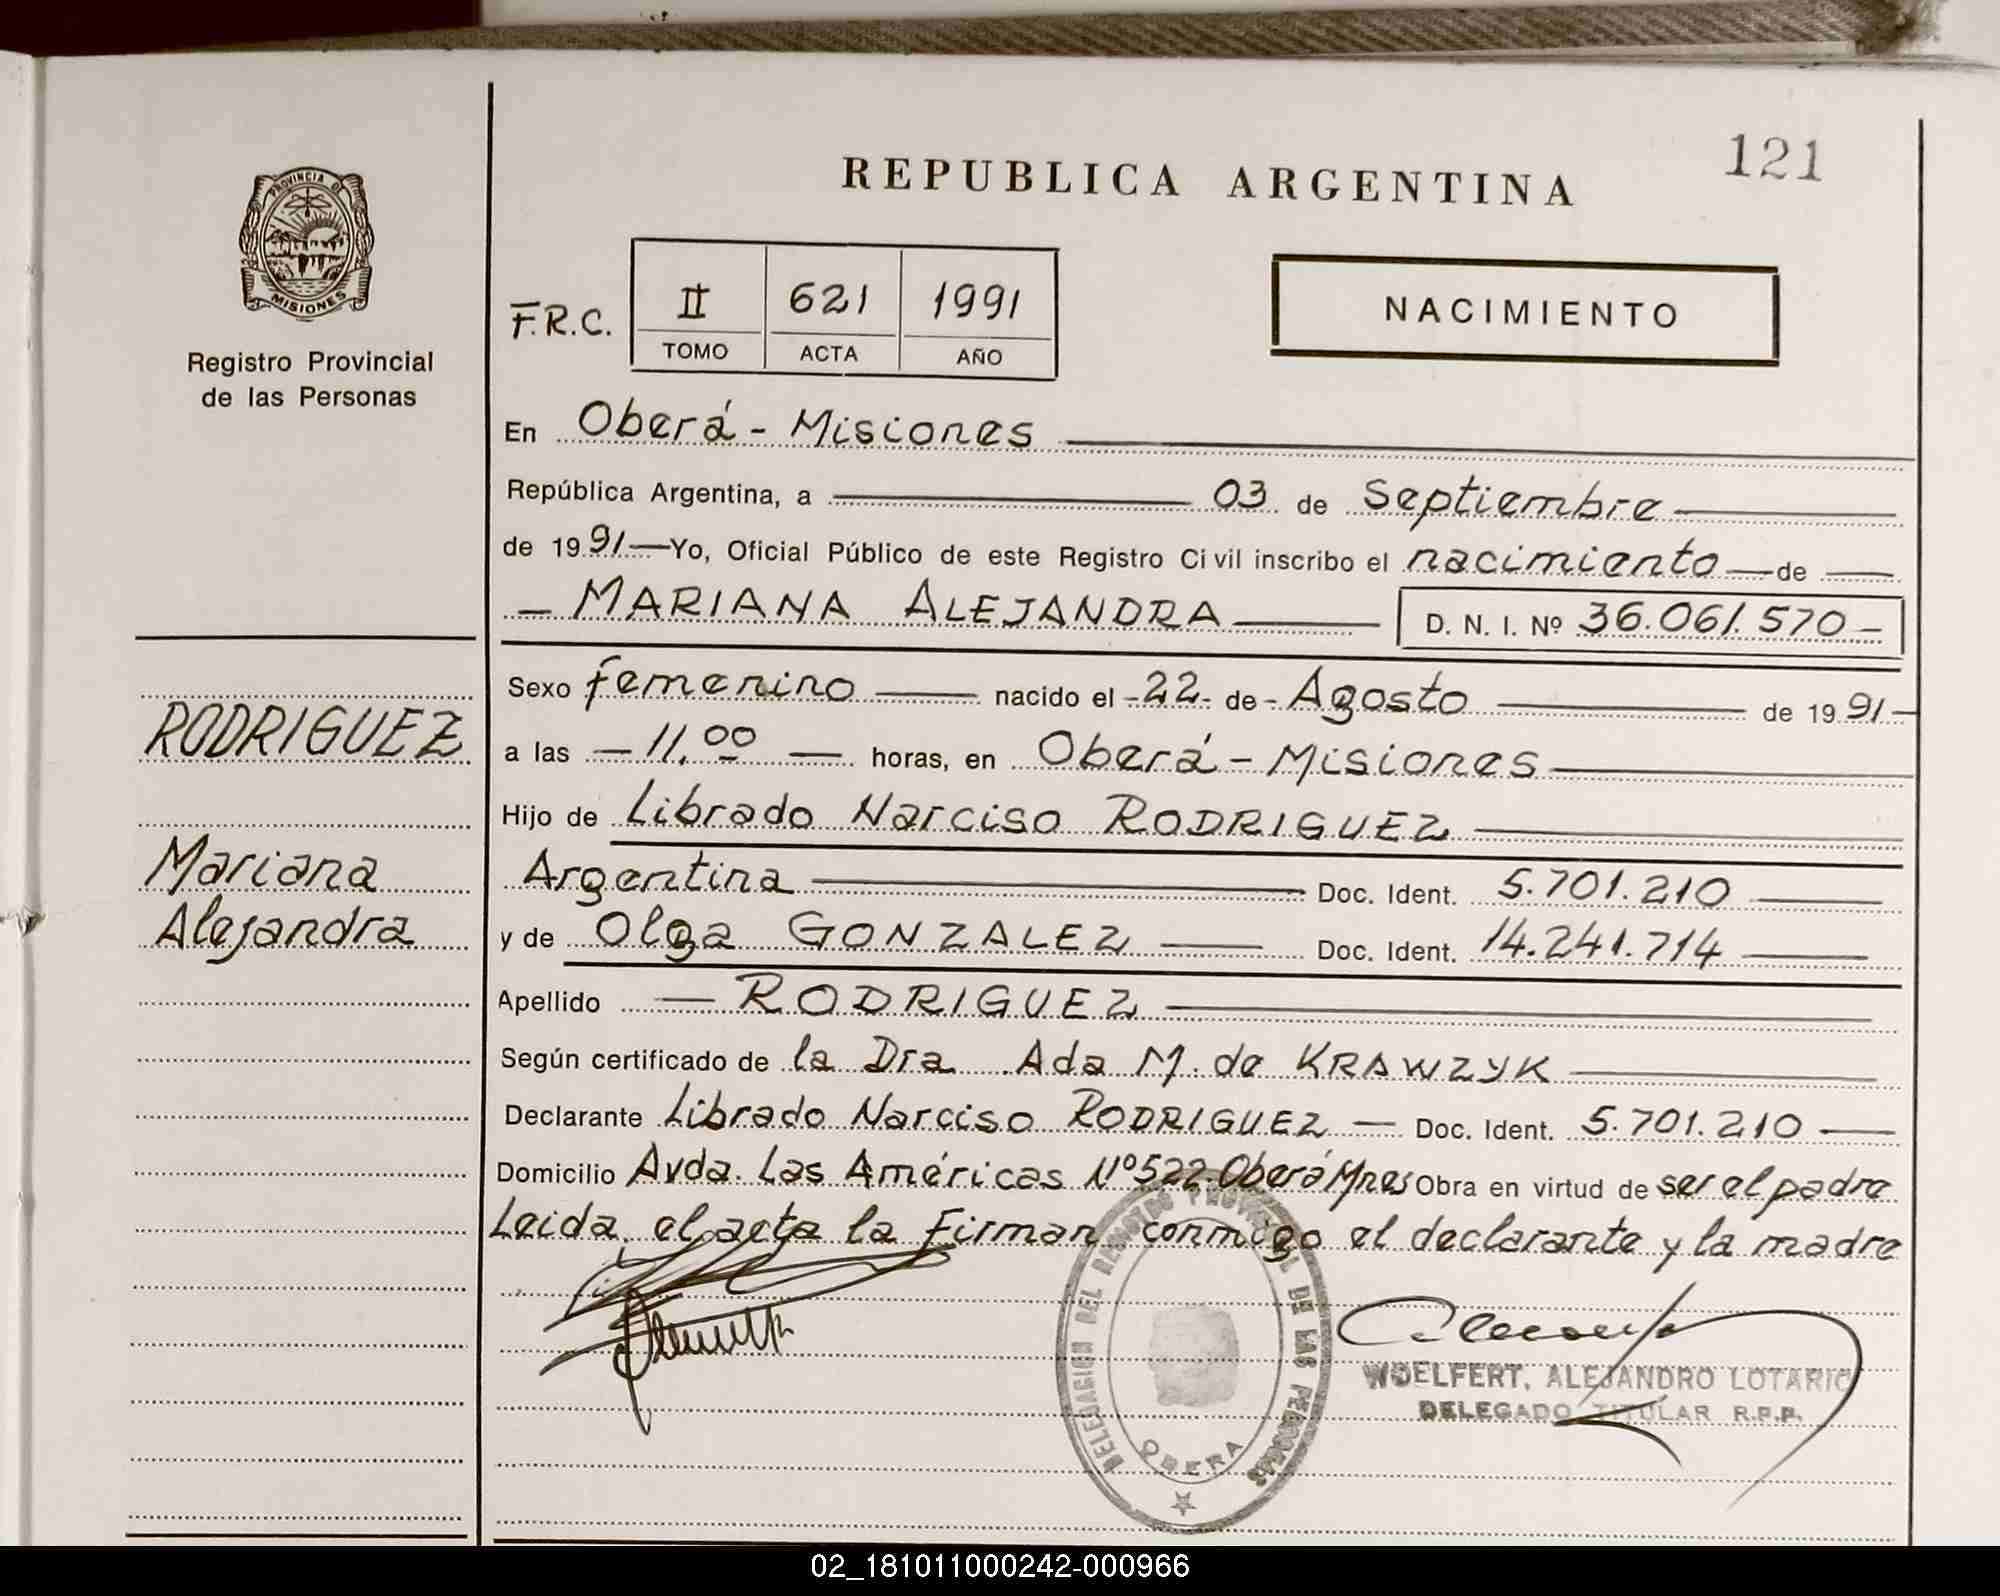 121
REPUBLICA ARGENTINA
PROVINCIA DE
MISIONES
Registro Provincial
de las Personas
F.R.C.
II 621 1991
TOMO ACTA AÑO
NACIMIENTO
En Oberá - Misiones
República Argentina, a 03 de Septiembre
de 1991 Yo, Oficial Público de este Registro Civil inscribo el nacimiento de
MARIANA ALEJANDRA D. N. I. Nº 36.061.570
Sexo Femenino nacido el 22 de Agosto de 1991
a las 11.00 horas, en Oberá - Misiones
Hijo de Librado Narciso RODRIGUEZ
Argentina Doc. Ident. 5.701.210
y de Olga GONZALEZ Doc. Ident. 14.241.714
Apellido RODRIGUEZ
Según certificado de la Dra Ada M. de KRAWZYK
Declarante Librado Narciso RODRIGUEZ Doc. Ident. 5.701.210
Domicilio Avda. Las Américas Nº 522 Oberá Mnes Obra en virtud de ser el padre
Leida el acta la Firman conmigo el declarante y la madre
RODRIGUEZ
Mariana
Alejandra
DELEGACION DEL REGISTRO PROVINCIAL DE LAS PERSONAS
OBERA
WOELFERT, ALEJANDRO LOTARIO
DELEGADO TITULAR R.P.P.
02_181011000242-000966